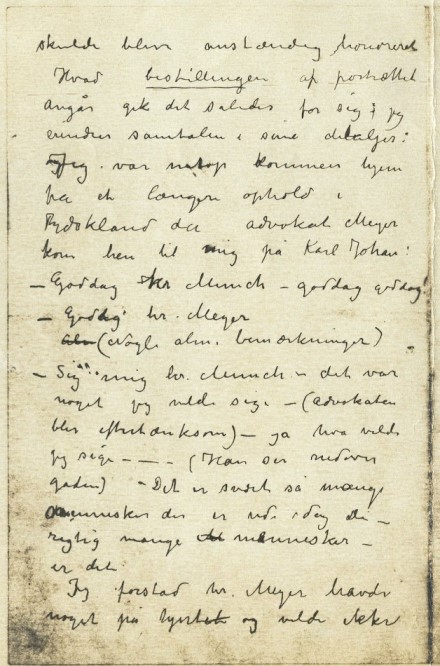 skulde blive anstændig honoreret
Hvad bestillingen af portrættet
angår gik det således for sig; jeg
erindrer samtalen i sine detaljer:
Jeg var netop kommen hjem
fra et længere ophold i
Tydskland da advokat Meyer
kom hen til mig på Karl Johan:
– Goddag Hr Munch – goddag goddag!
– Goddag hr. Meyer
(Nogle alm. bemærkninger)
– Sig mig hr. Munch – det var
noget jeg vilde sige – (advokaten
blir eftertænksom) – ja hva vilde
jeg sige – – – (Han ser nedover
gaden) – Det er svært så mange
mennesker der er ude idag di –
rigtig mange mennesker –
er det
Jeg forstod hr. Meyer havde
noget på hjertet og vilde ikke